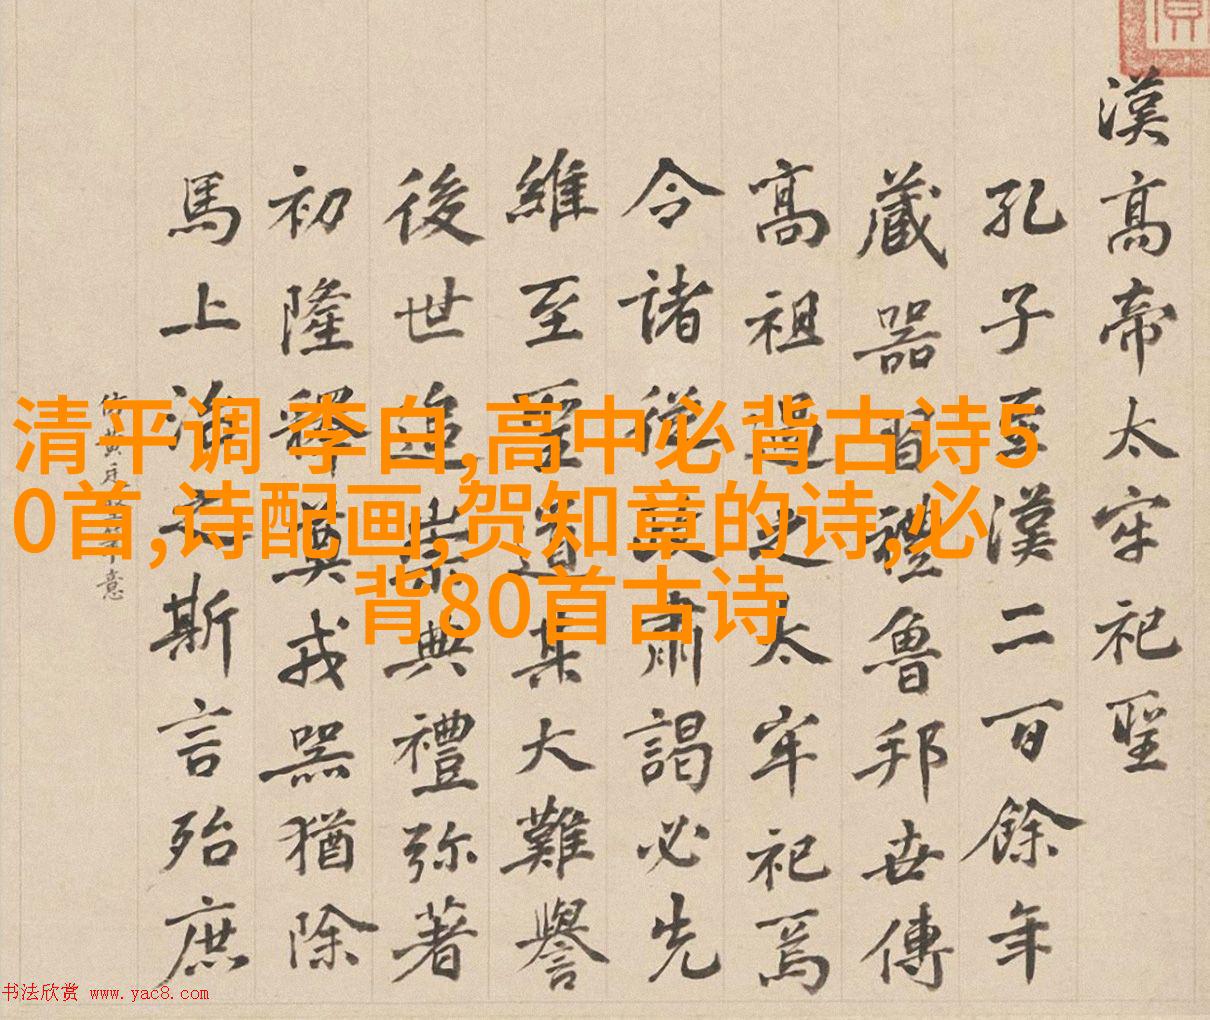 漢高帝太牢祀聖
孔子至漢二百餘年
藏器習禮魯邦世傳
高祖過之太牢祀焉
令諸從肅謁必先
維至聖道大難譽
後世追崇典禮弥著
初隆釋奠戎器猶除
馬上治斯言殆庶
意
清平调 李白,高中必背古诗5
0首,诗配画,贺知章的诗,必
背80首古诗
书法欣赏 www.yac8.com